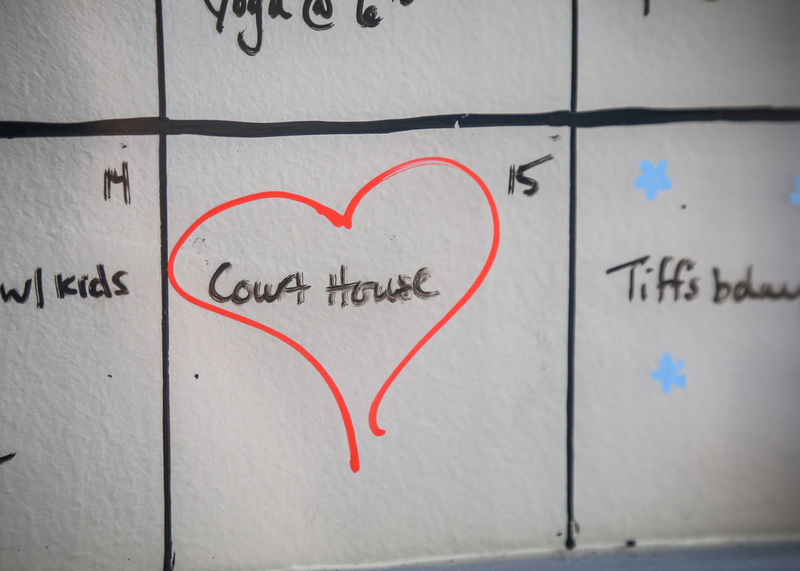 Yoga @ 6
14
15
w/ kids
Court House
Tiff's